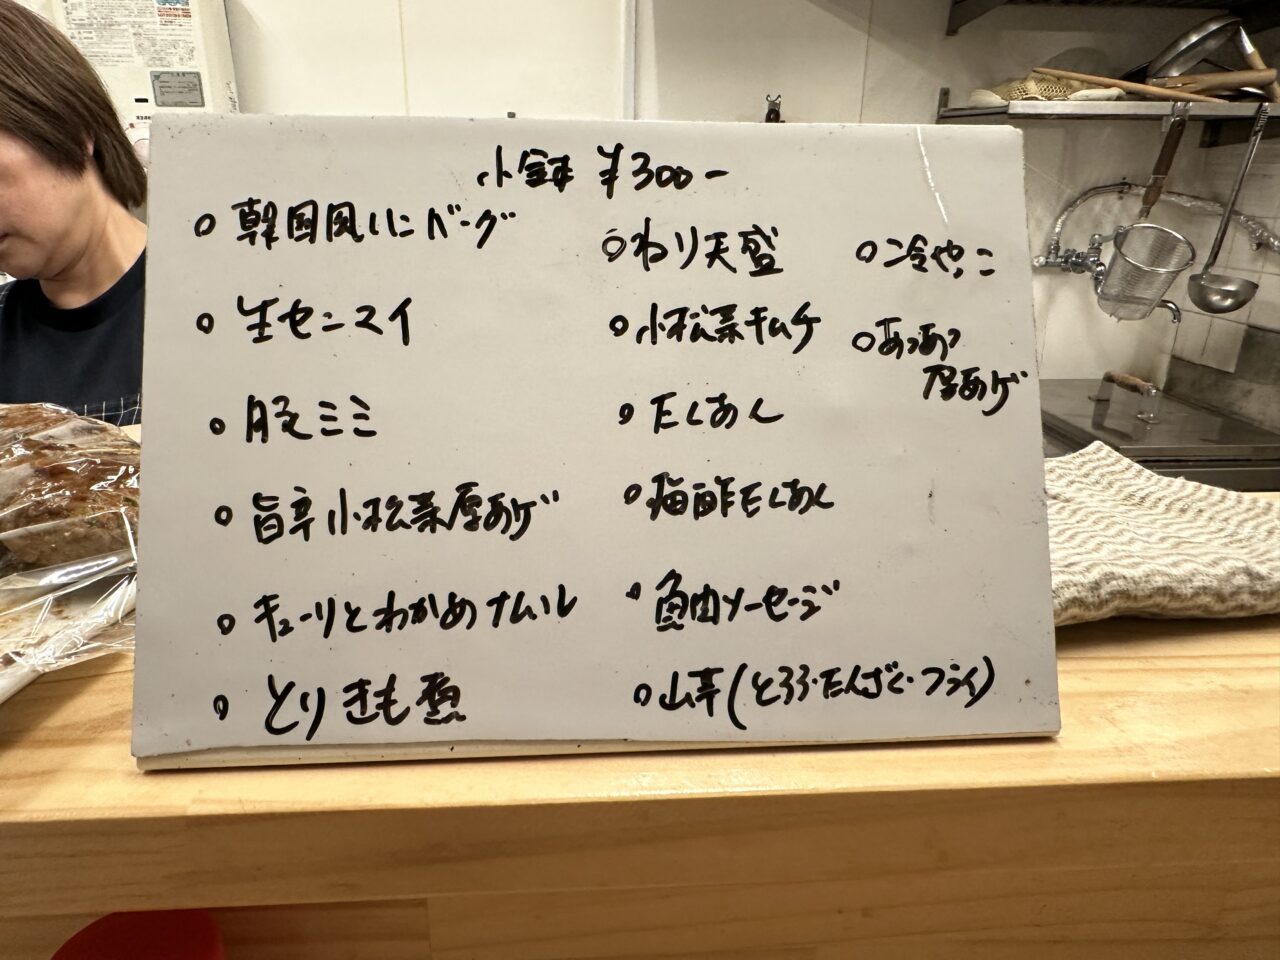 小鉢 ¥300-
○ 韓国風ハンバーグ
○ 生センマイ
○ 豚ミミ
○ 旨辛小松菜厚あげ
○ キューリとわかめナムル
○ とりきも煮
○ ねり天盛
○ 小松菜キムチ
○ たくあん
○ 梅酢たくあん
○ 魚肉ソーセージ
○ 山芋(とろろ・たんざく・フライ)
○ 冷やっこ
○ あつあつ
厚あげ